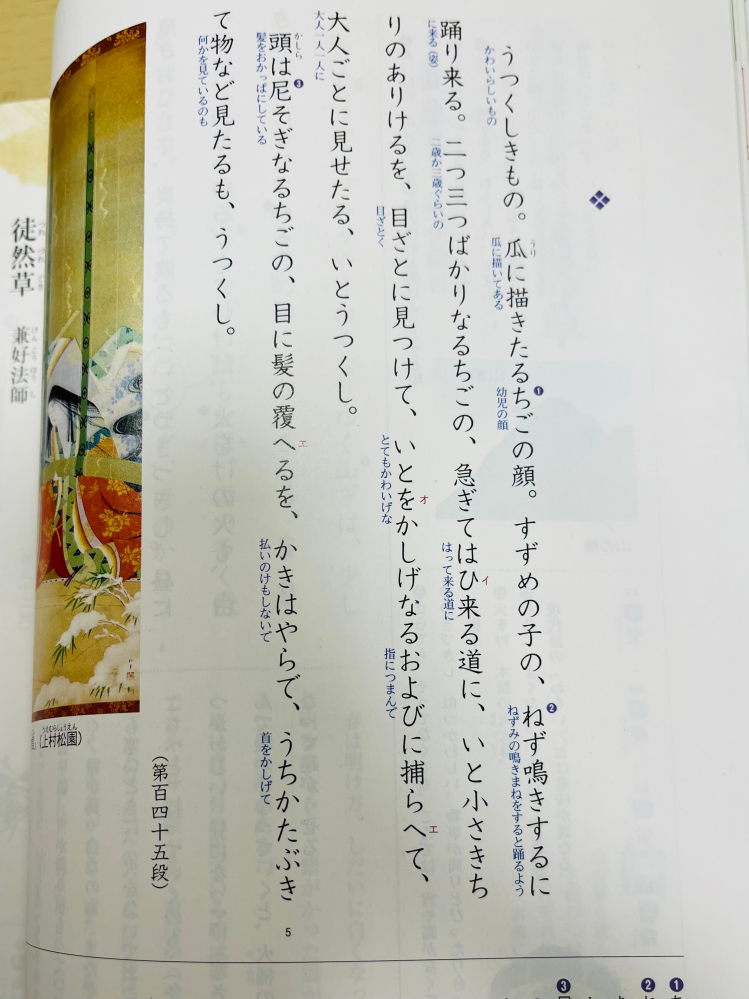 うつくしきもの。瓜に描きたるちごの顔。すずめの子の、ねず鳴きするに
うり
❶
❷
かわいらしいもの
瓜に描いてある
幼児の顔
ねずみの鳴きまねをすると踊るよう
踊り来る。二つ三つばかりなるちごの、急ぎてはひ来る道に、いと小さきち
イ
に来る(姿)
二歳か三歳ぐらいの
はって来る道に
りのありけるを、目ざとに見つけて、いとをかしげなるおよびに捕らへて、
オ
エ
目ざとく
とてもかわいげな
指につまんで
大人ごとに見せたる、いとうつくし。
大人一人一人に
頭は尼そぎなるちごの、目に髪の覆へるを、かきはやらで、うちかたぶき
かしら
❸
エ
髪をおかっぱにしている
払いのけもしないで
首をかしげて
て物など見たるも、うつくし。
何かを見ているのも
(第百四十五段)
(上村松園)
うえむらしょうえん
5
徒然草
つれづれぐさ
兼好法師
けんこうほうし
❶
❷
❸